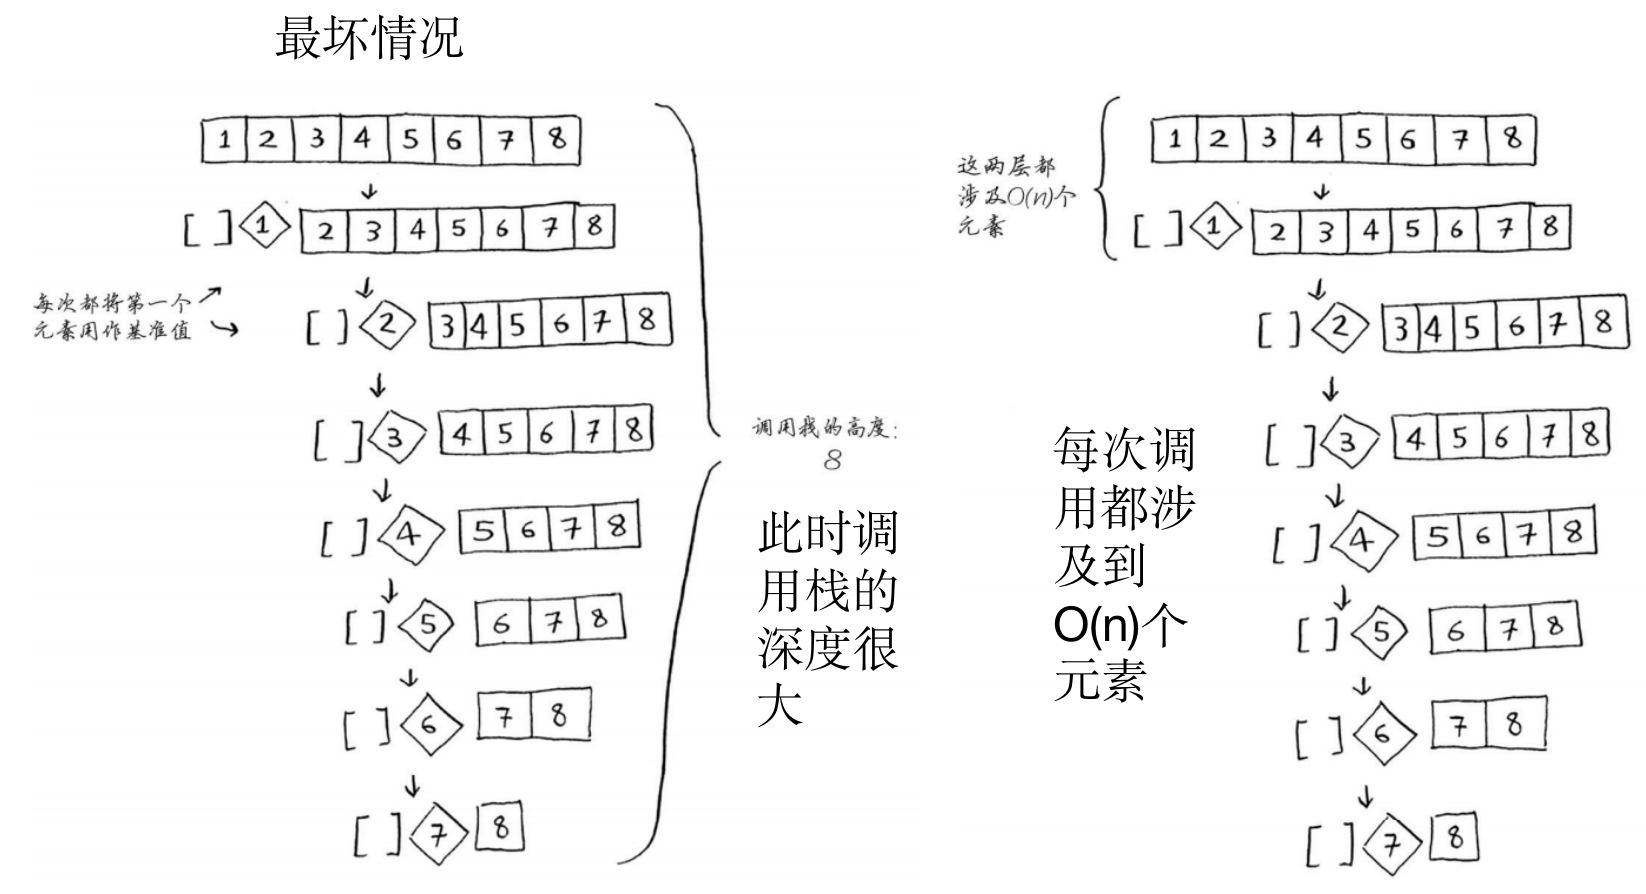 最坏情况
1 2 3 4 5 6 7 8
[ ] 1 2 3 4 5 6 7 8
每次都将第一个
元素用作基准值
[ ] 2 3 4 5 6 7 8
[ ] 3 4 5 6 7 8
[ ] 4 5 6 7 8
[ ] 5 6 7 8
[ ] 6 7 8
[ ] 7 8
调用栈的高度：
8
此时调
用栈的
深度很
大
这两层都
涉及O(n)个
元素
1 2 3 4 5 6 7 8
[ ] 1 2 3 4 5 6 7 8
[ ] 2 3 4 5 6 7 8
[ ] 3 4 5 6 7 8
[ ] 4 5 6 7 8
[ ] 5 6 7 8
[ ] 6 7 8
[ ] 7 8
每次调
用都涉
及到
O(n)个
元素